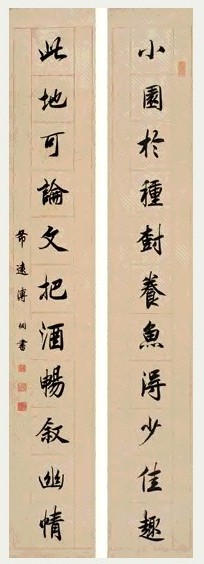 小園於種樹養魚得少佳趣
此地可論文把酒暢叙幽情
遠溥侗書